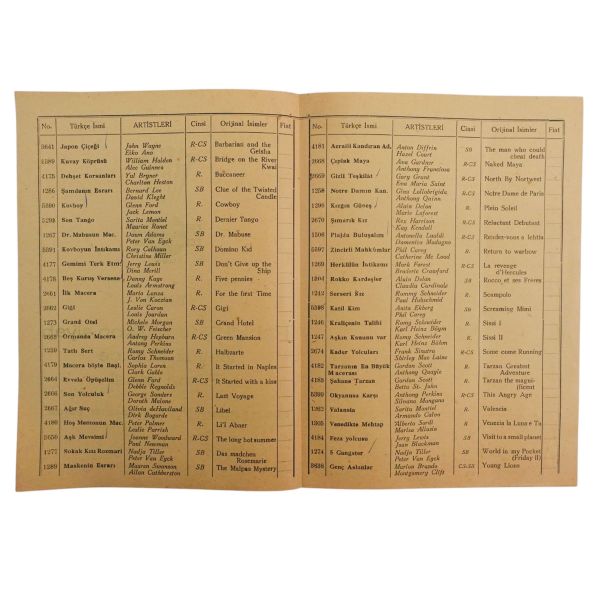 No. Türkçe İsmi ARTİSTLERİ Cinsi Orijinal İsimler Fiat
5641 Japon Çiçeği John Wayne R-CS Barbarian and the
Eiko Ano Geisha
1589 Kuvay Köprüsü William Holden R-CS Bridge on the River
Alec Guinnes Kwai
4175 Dehşet Korsanları Yul Bryner R. Buccaneer
Charlton Heston
1286 Şamdanın Esrarı Bernard Lee SB Clue of the Twisted
David Kleght Candle
5590 Kovboy Glenn Ford R. Cowboy
Jack Lemon
5299 Son Tango Sarita Montiel R. Dernier Tango
Maurice Ronet
1267 Dr. Mabusun Mac. Dawn Adams SB Dr. Mabuse
Peter Van Eyck
5591 Kovboyun İntikamı Rory Calhoun SB Domino Kid
Christina Miller
4177 Gemimi Terk Etm Jerry Lewis SB Don't Give up the
Dina Merill Ship
4178 Beş Kuruş Versene Danny Kaye R. Five pennies
Louis Armstrong
2661 İlk Macera Mario Lanza R. For the first Time
J. Von Koczian
2662 Gigi Leslie Caron R-CS Gigi
Louis Jourdan
1273 Grand Otel Michele Morgan SB Grand Hotel
O. W. Feischer
2663 Ormanda Macera Andrey Hepburn R-CS Green Mansion
Antony Perkins
1239 Tatlı Sert Romy Schneider R. Halbzarte
Carlos Thomson
4179 Macera böyle Başl. Sophia Loren R. It Started in Naples
Clark Gable
2664 Evvela Öpüşelim Glenn Ford R-CS It Started with a kiss
Debbie Reynolds
2666 Son Yolculuk George Sanders R. Last Voyage
Doroth Malone
2667 Ağır Suç Olivia deHavilland SB Libel
Dirk Bogarde
4180 Hoş Memonun Mac. Peter Palmer R. Li'l Abner
Leslie Parrish
5650 Aşk Mevsimi Joanne Woodward R-CS The long hot summer
Paul Newman
1277 Sokak Kızı Rozmari Nadja Tiller SB Das madches
Peter Van Eyck Rosemarie
1289 Maskenin Esrarı Mauran Swanson SB The Malpas Mystery
Allan Cuthberston
No. Türkçe İsmi ARTİSTLERİ Cinsi Orijinal İsimler Fiat
4181 Azraili Kandıran Ad. Anton Diffrin SB The man who could
Hazel Court cheat death
2668 Çıplak Maya Ava Gardner R-CS Naked Maya
Anthony Franciosa
2669 Gizli Teşkilât Gary Grant R-CS North By Nortwest
Eva Maria Saint
1258 Notre Damın Kan. Gina Lullobrigida R-CS Notre Dame de Paris
Anthony Quinn
1296 Kızgın Güneş Alain Delon R. Plein Soleil
Marie Laforest
2670 Şımarık Kız Rex Harrison R-CS Reluctant Debutant
Kay Kendall
1506 Plajda Buluşalım Antonella Lualdi R-CS Rendez-vous a Ichitia
Domenico Modugno
5597 Zincirli Mahkûmlar Phil Carey R. Return to warbow
Catherine Mc Lood
1269 Herkülün İntikamı Mark Forest R-CS La revenge
Broderic Crawford d'Hercules
1204 Rokko Kardeşler Alain Delon SB Rocco et ses Fréres
Claudia Cardinale
1242 Serseri Kız Rommy Schneider R. Scampolo
Paul Hubschmid
5598 Katil Kim Anita Ekberg SB Screaming Mimi
Phil Carey
1246 Kraliçenin Talihi Romy Schneider R. Sissi I
Karl Heinz Böym
1247 Aşkın Kanunu var Romy Schneider R. Sissi II
Karl Heinz Böhm
2674 Kadar Yolcuları Frank Sinatra R-CS Some came Running
Shirley Mac Laine
4182 Tarzanın En Büyük Gordon Scott R. Tarzan Greatest
Macerası Anthony Quayle Adventure
4185 Şahane Tarzan Gordon Scott R. Tarzan the magni-
Betta St. John ficent
5299 Okyanusa Karşı Anthony Perkins R-CS This Angry Age
Silvano Mangano
1262 Valansia Sarita Montiel R. Valencia
Armando Calvo
1305 Venedikte Mehtap Alberto Sardi R. Venezia la Luna e Tu
Marisa Allasio
4184 Feza yolcusu Jerry Lewis SB Visit to a small planet
Joan Blackman
1274 5 Gangster Nadja Tiller SB World in my Pocket
Peter Van Eyck (Friday II)
5638 Genç Aslanlar Marlon Brando CS-SB Young Lions
Montgomery Clift